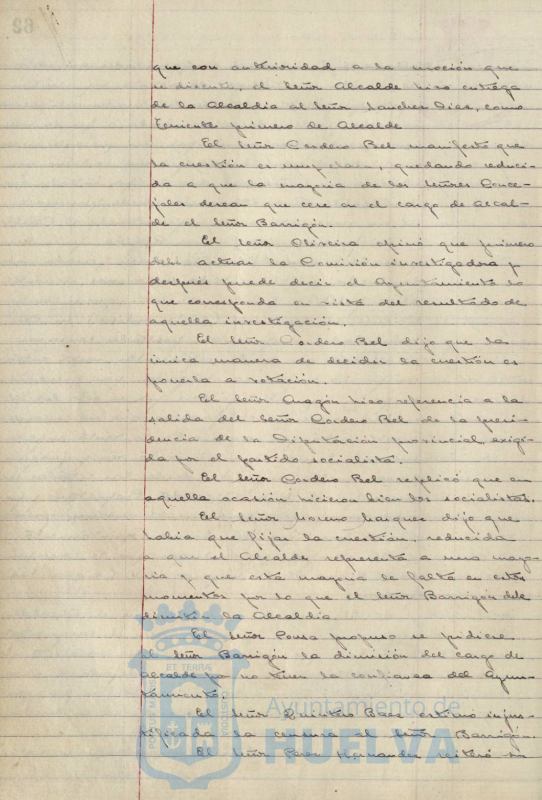 que con anterioridad a la moción que
se discute, el Señor Alcalde hizo entrega
de la Alcaldía al Señor Sanchez Dias, como
Teniente primero de Alcalde
El Señor Cordero Bel manifestó que
la cuestión es muy clara, quedando reduci-
da a que la mayoria de los Señores Conce-
jales desean que cese en el cargo de Alcal-
de el Señor Barrigón.
El Señor Oliveira opinó que primero
debe actuar la Comisión investigadora y
después puede decir el Ayuntamiento lo
que corresponda en vista del resultado de
aquella investigación.
El Señor Cordero Bel dijo que la
única manera de decidir la cuestión es
ponerla a votación.
El Señor Aragón hizo referencia a la
salida del Señor Cordero Bel de la presi-
dencia de la Diputación provincial, exigi-
da por el partido socialista.
El Señor Cordero Bel replicó que en
aquella ocasión hicieron bien los socialistas.
El Señor Moreno Marquez dijo que
habia que fijar la cuestión, reducida
a que el Alcalde representa a una mayo-
ria y que esta mayoria le falta en estos
momentos por lo que el Señor Barrigón debe
dimitir la Alcaldía.
El Señor Pousa propuso se pidiese
al Señor Barrigón la dimisión del cargo de
alcalde por no tener la confianza del Ayun-
tamiento.
El Señor Quintero Baez estimó injus-
tificada la censura al Señor Barrigón.
El Señor Perez Hernandez reiteró la
PORTUS MARIS
ET TERRAE
CUSTODIA
Ayuntamiento de
HUELVA